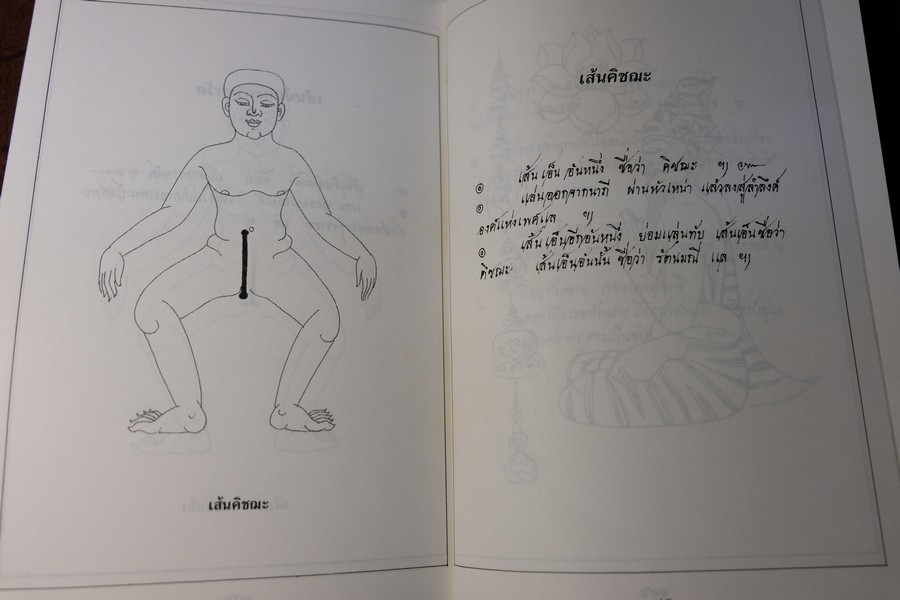 เส้นคิชฌะ
เส้นคิชฌะ
๏ เส้นเอ็นอันหนึ่ง ชื่อว่า คิชฌะ ฯ
๏ แล่นออกจากนาภี ผ่านหัวเหน่า แล้วลงสู่ลำลึงค์
องค์แห่งเพศแล ฯ
๏ เส้นเอ็นอีกอันหนึ่ง ย่อมแล่นทับ เส้นเอ็นชื่อว่า
คิชฌะ เส้นเอ็นอันนั้น ชื่อว่า รัตนมณี แล ฯ